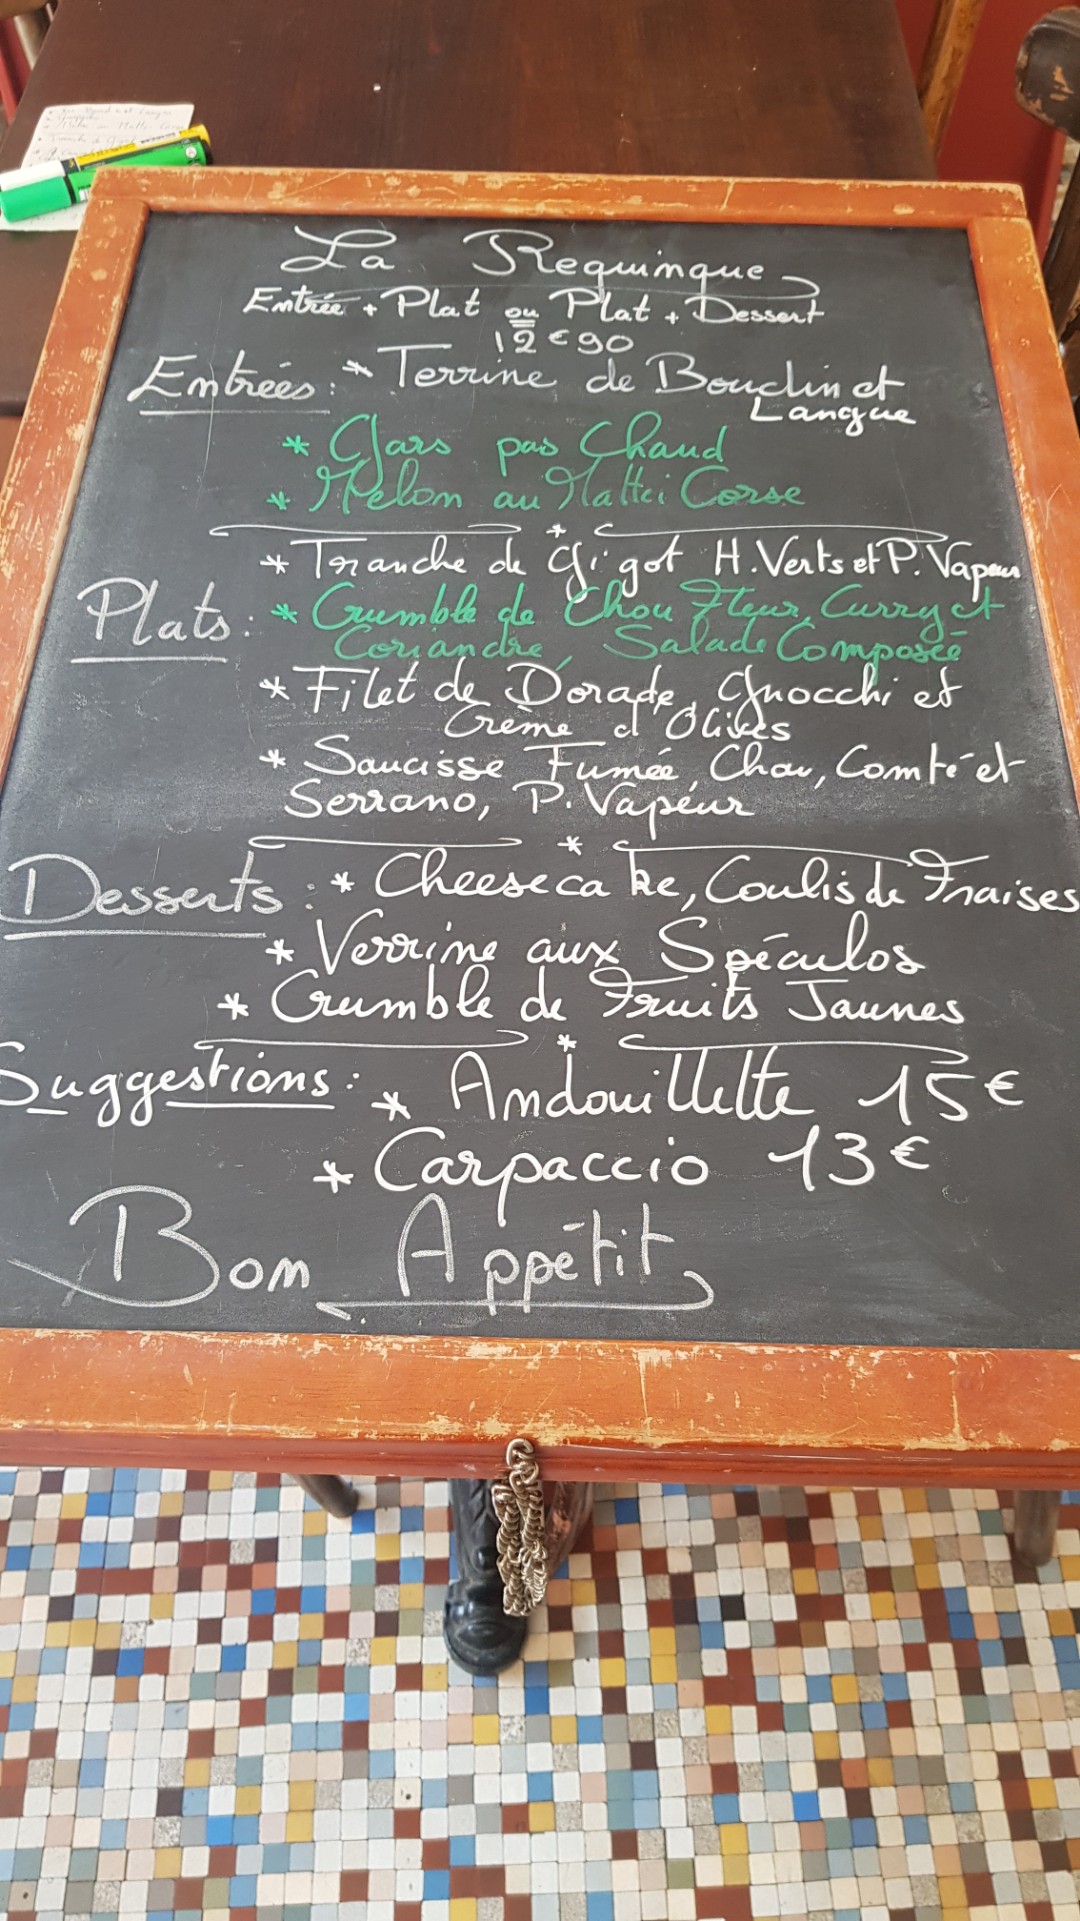 La Requinque
Entrée + Plat ou Plat + Dessert
12€90
Entrées: * Terrine de Boudin et
Langue
* Gars pas Chaud
* Melon au Mattei Corse
* Tranche de Gigot H.Verts et P. Vapeur
Plats: * Crumble de Chou Fleur, Curry et
Coriandre, Salade Composée
* Filet de Dorade, Gnocchi et
Crème d'Olives
* Saucisse Fumée, Chou, Comté et
Serrano, P. Vapeur
Desserts: * Cheesecake, Coulis de Fraises
* Verrine aux Spéculos
* Crumble de Fruits Jaunes
Suggestions: * Andouillette 15€
* Carpaccio 13€
Bon Appétit